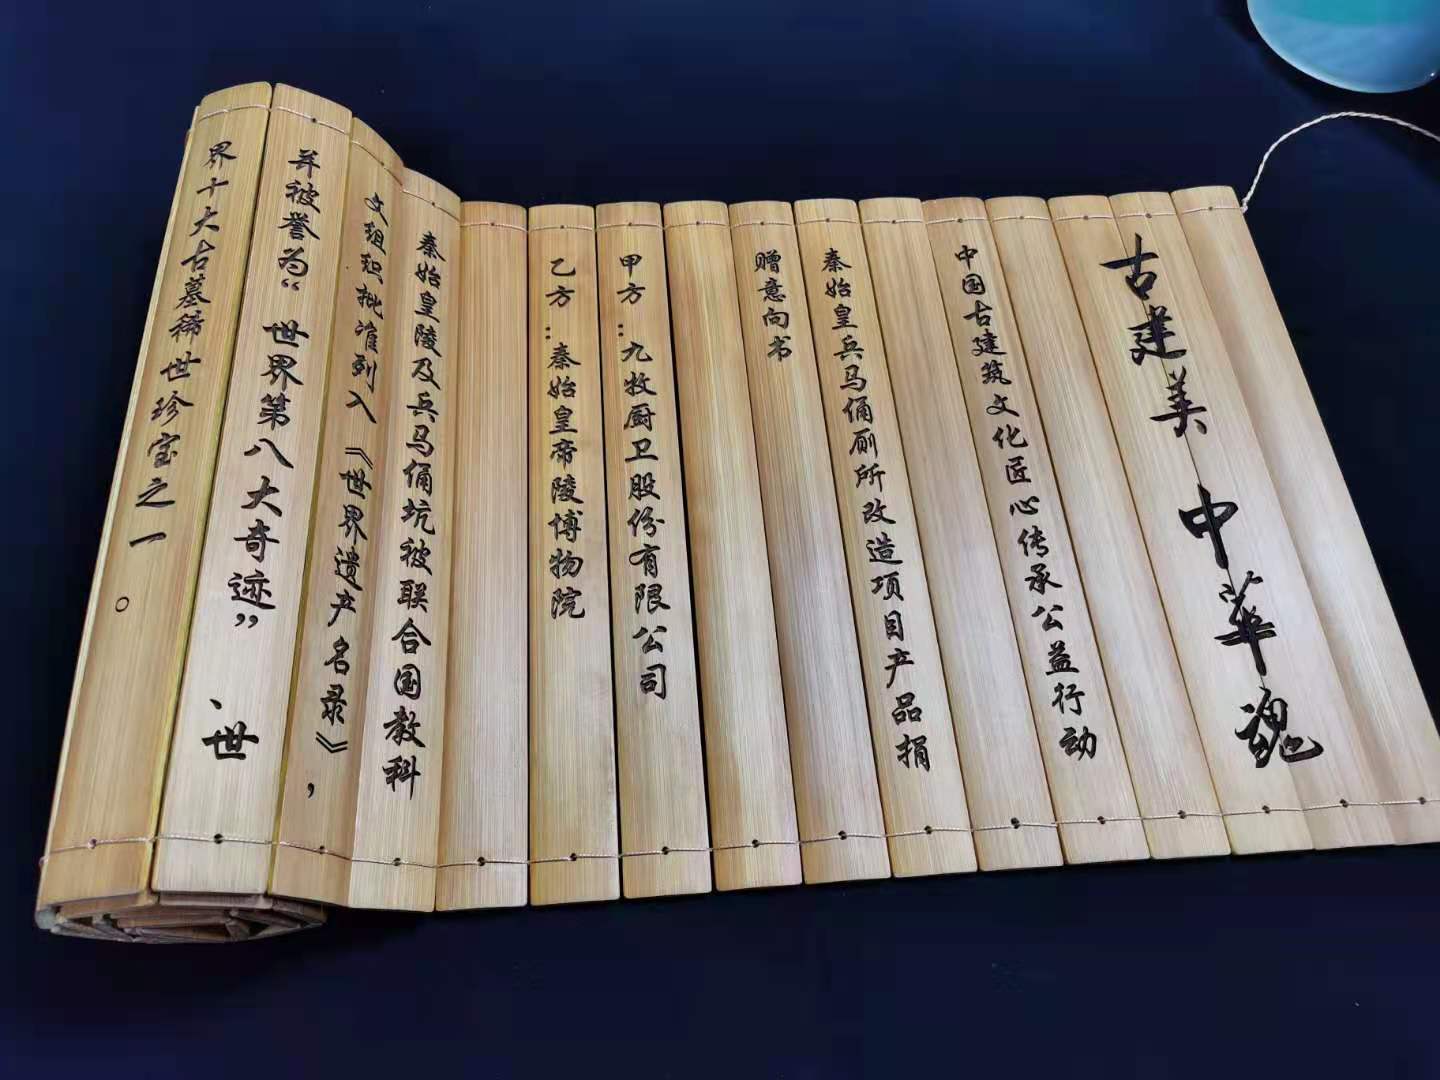 古建美 中華魂
中国古建筑文化匠心传承公益行动
秦始皇兵马俑厕所改造项目产品捐
赠意向书
甲方：九牧厨卫股份有限公司
乙方：秦始皇帝陵博物院
秦始皇陵及兵马俑坑被联合国教科
文组织批准列入《世界遗产名录》，
并被誉为“世界第八大奇迹”、世
界十大古墓稀世珍宝之一。